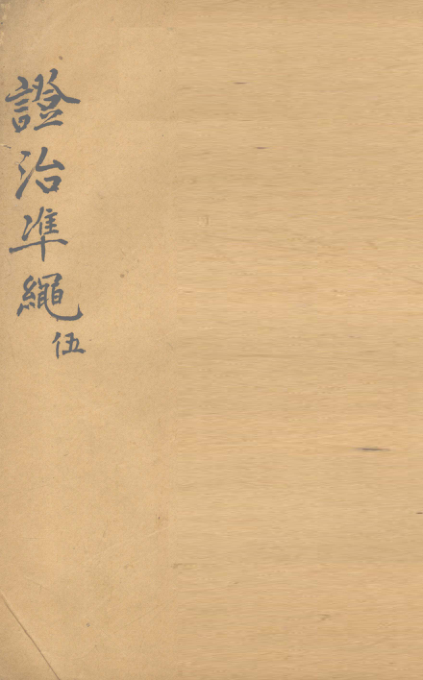 證治准繩
伍